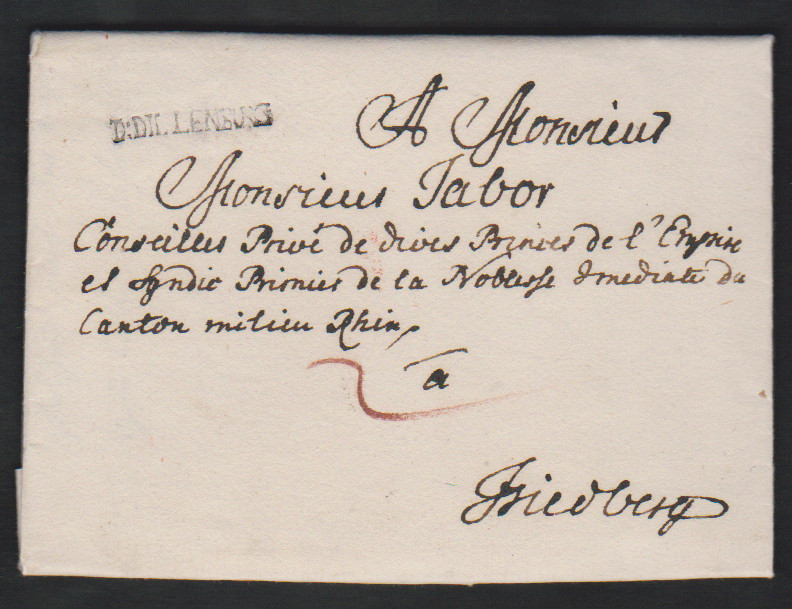 D:DILLENBURG
A Monsieur
Monsieur Tabor
Conseiller Privé de divers Princes de l'Empire
et Syndic Primier de la Noblesse Imediate du
Canton milieu Rhin
a
Friedberg